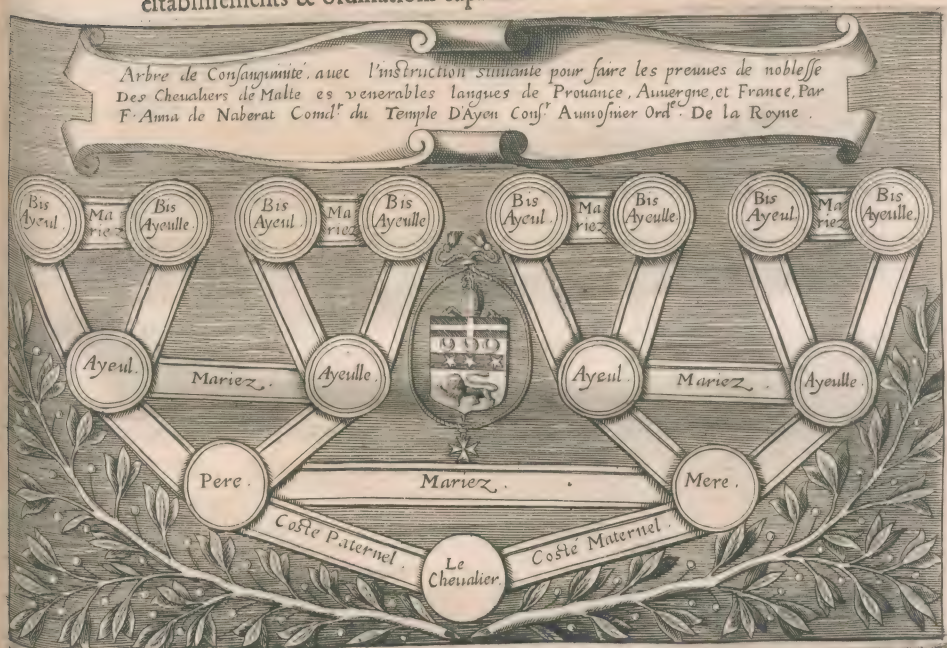 establissements & ordinations
Arbre de Consanguinité, auec l'instruction suiuante pour faire les preuues de noblesse
Des Cheualiers de Malte es venerables langues de Prouance, Auuergne, et France, Par
F. Anna de Naberat Comdr. du Temple D'Ayen Consr. Aumosnier Ordre. De la Royne.
Bis
Ayeul.
Ma
riez
Bis
Ayeulle.
Bis
Ayeul.
Ma
riez
Bis
Ayeulle.
Bis
Ayeul.
Ma
riez
Bis
Ayeulle.
Bis
Ayeul.
Ma
riez
Bis
Ayeulle.
Ayeul.
Mariez.
Ayeulle.
Ayeul.
Mariez.
Ayeulle.
Pere.
Mariez.
Mere.
Costé Paternel.
Costé Maternel.
Le
Cheualier.